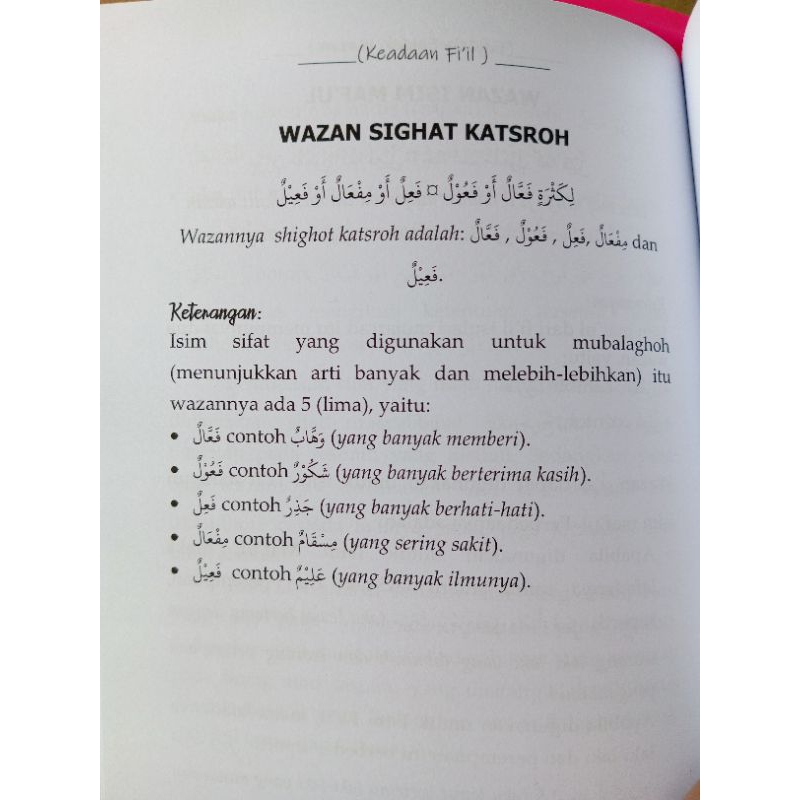 (Keadaan Fi'il )
WAZAN SIGHAT KATSROH
لِكَثْرَةٍ فَعَّالٌ أَوْ فَعُوْلٌ ¤ فَعِلٌ أَوْ مِفْعَالٌ أَوْ فَعِيْلٌ
Wazannya shighot katsroh adalah: فَعَّالٌ , فَعُوْلٌ , فَعِلٌ, مِفْعَالٌ dan
فَعِيْلٌ.
Keterangan:
Isim sifat yang digunakan untuk mubalaghoh
(menunjukkan arti banyak dan melebih-lebihkan) itu
wazannya ada 5 (lima), yaitu:
• فَعَّالٌ contoh وَهَّابٌ (yang banyak memberi).
• فَعُوْلٌ contoh شَكُوْرٌ (yang banyak berterima kasih).
• فَعِلٌ contoh جَذِرٌ (yang banyak berhati-hati).
• مِفْعَالٌ contoh مِسْقَامٌ (yang sering sakit).
• فَعِيْلٌ contoh عَلِيْمٌ (yang banyak ilmunya).